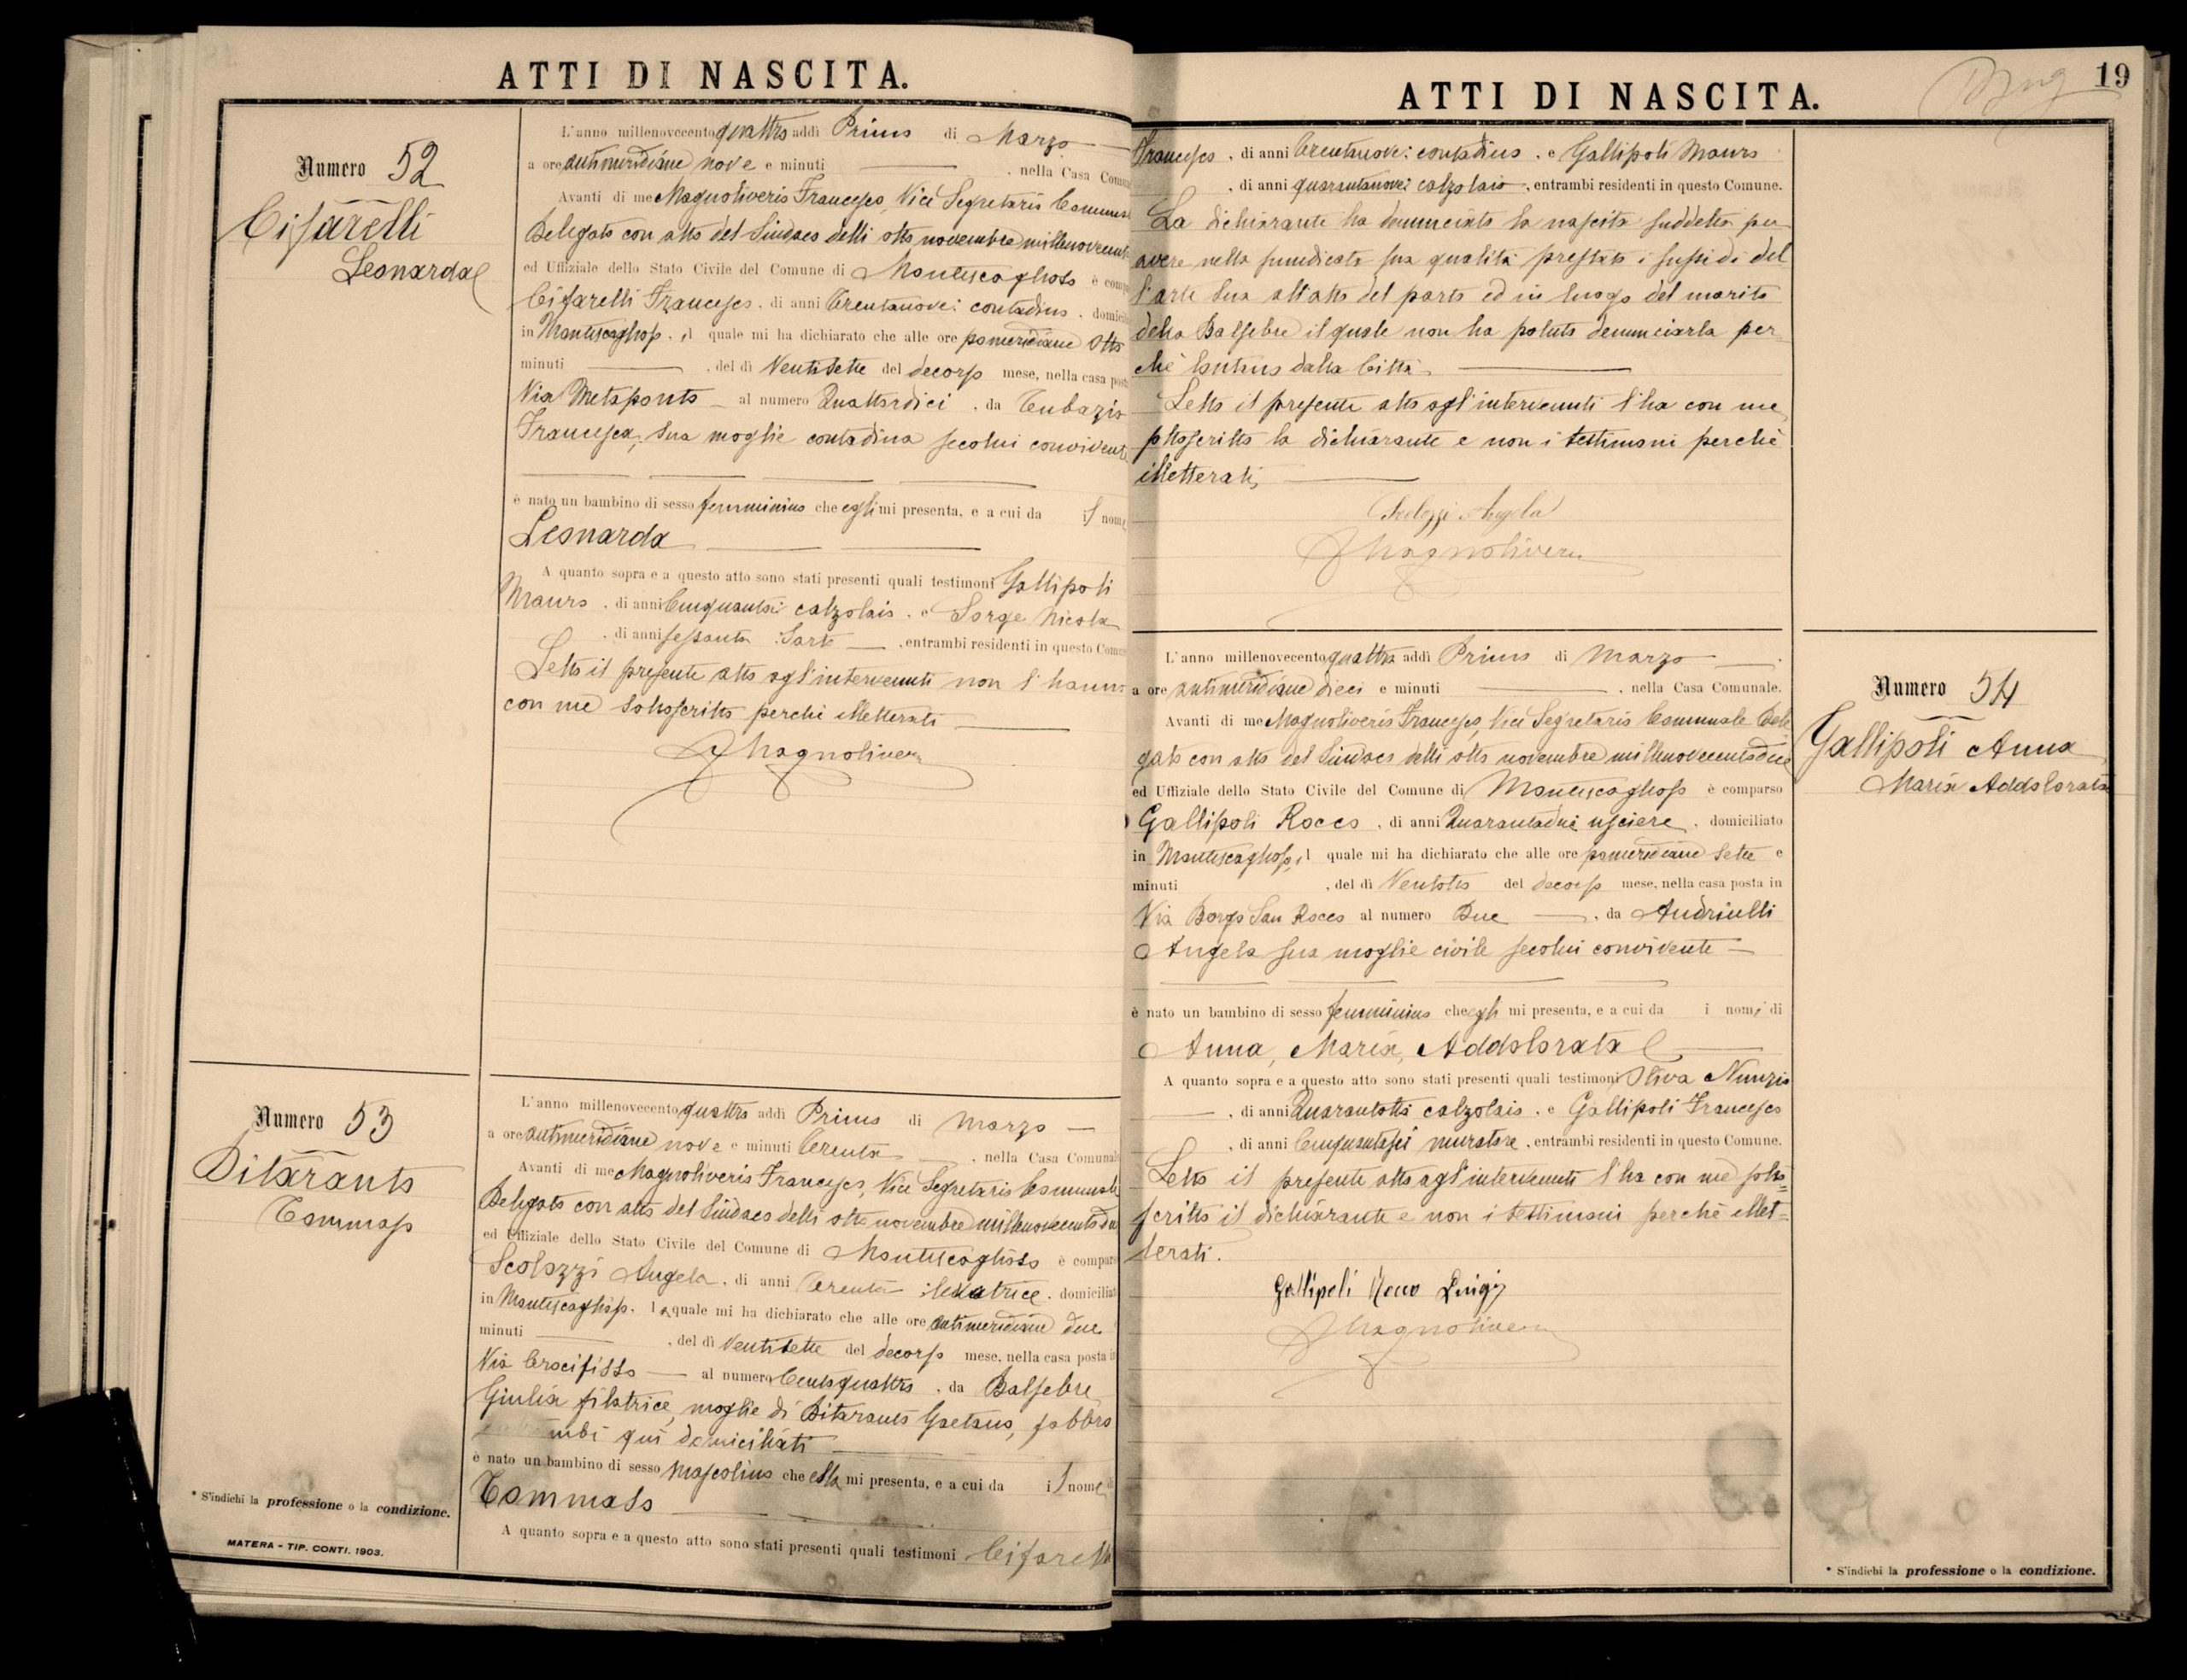 ATTI DI NASCITA.
Numero 52
Cifarelli
Leonarda
L'anno millenovecento quattro addì Primo di Marzo
a ore antimeridiane nove e minuti , nella Casa Comu
Avanti di me Magnoliveris Francesco, Vice Segretario Comuna
Delegato con atto del Sindaco delli otto novembre millenovecento
ed Uffiziale dello Stato Civile del Comune di Montescaglioso è comp
Cifarelli Francesco, di anni trentanove: contadino, domici
in Montescaglioso, il quale mi ha dichiarato che alle ore pomeridiane otto
minuti , del dì Ventisette del decorso mese, nella casa post
Via Metaponto al numero Quattordici, da Tubazio
Francesca, sua moglie contadina secolui convivente
è nato un bambino di sesso femminino che egli mi presenta, e a cui da il nome
Leonarda
A quanto sopra e a questo atto sono stati presenti quali testimoni Gallipoli
Mauro, di anni Cinquanta: calzolaio, e Sorge Nicola
, di anni sessanta: Sarto , entrambi residenti in questo Comu
Letto il presente atto agl'intervenuti non l'hanno
con me sottoscritto perchè illetterati
FMagnoliveri
Numero 53
Ditaranto
Tommaso
L'anno millenovecento quattro addì Primo di Marzo
a ore antimeridiane nove e minuti trenta , nella Casa Comunale
Avanti di me Magnoliveris Francesco, Vice Segretario Comunale
Delegato con atto del Sindaco delli otto novembre millenovecentodue
ed Uffiziale dello Stato Civile del Comune di Montescaglioso è compar
Scolozzi Angela, di anni trenta: levatrice, domiciliat
in Montescaglioso, la quale mi ha dichiarato che alle ore antimeridiane due
minuti , del dì Ventisette del decorso mese, nella casa posta i
Via Crocifisso al numero Centoquattro, da Balsebre
Giulia filatrice, moglie di Ditaranto Gaetano, fabbro
entrambi qui domiciliati
è nato un bambino di sesso mascolino che ella mi presenta, e a cui da il nome d
Tommaso
A quanto sopra e a questo atto sono stati presenti quali testimoni Cifarelli
* S'indichi la professione o la condizione.
MATERA - TIP. CONTI. 1903.
ATTI DI NASCITA.
19
Francesco, di anni trentanove: contadino, e Gallipoli Mauro
, di anni quarantanove: calzolaio, entrambi residenti in questo Comune.
La dichiarante ha denunciato la nascita suddetta per
avere nella sunidicata sua qualità prestato i sussidi del
l'arte sua all'atto del parto ed in luogo del marito
della Balsebre il quale non ha potuto denunciarla per
chè lontano dalla Città
Letto il presente atto agl'intervenuti l'ha con me
sottoscritto la dichiarante e non i testimoni perchè
illetterati
Scolozzi Angela
FMagnoliveri
L'anno millenovecento quattro addì Primo di Marzo
a ore antimeridiane dieci e minuti , nella Casa Comunale.
Avanti di me Magnoliveris Francesco, Vice Segretario Comunale Dele
gato con atto del Sindaco delli otto novembre millenovecentodue
ed Uffiziale dello Stato Civile del Comune di Montescaglioso è comparso
Gallipoli Rocco, di anni Quarantadue usciere, domiciliato
in Montescaglioso, il quale mi ha dichiarato che alle ore pomeridiane sette e
minuti , del dì Ventotto del decorso mese, nella casa posta in
Via Borgo San Rocco al numero Due , da Andriulli
Angela sua moglie civile secolui convivente
è nato un bambino di sesso femminino che egli mi presenta, e a cui da i nomi di
Anna, Maria, Addolorata
A quanto sopra e a questo atto sono stati presenti quali testimoni Oliva Nunzio
, di anni Quarantotto calzolaio, e Gallipoli Francesco
, di anni Cinquantasei muratore, entrambi residenti in questo Comune.
Letto il presente atto agl'intervenuti l'ha con me sotto=
scritto il dichiarante e non i testimoni perchè illet=
terati.
Gallipoli Rocco Luigi
FMagnoliveri
Numero 54
Gallipoli Anna
Maria Addolorata
* S'indichi la professione o la condizione.